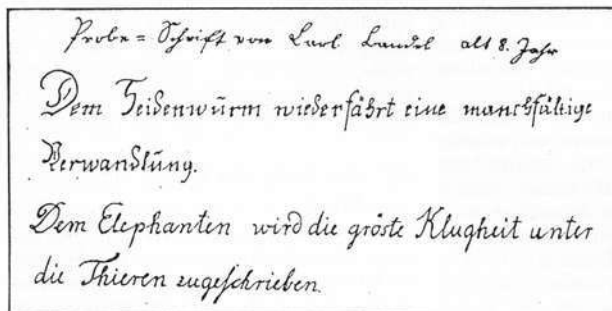 Probe=Schrift von Carl Candel alt 8. Jahr
Dem Seidenwūrm wiederfährt eine manchfältige
Verwandlūng.
Dem Elephanten wird die gröste Klugheit unter
die Thieren zugeschrieben.